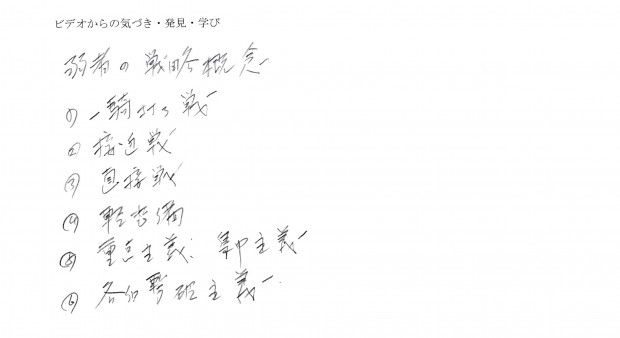 ビデオからの気づき・発見・学び
弱者の戦略概念
① 一騎打ち戦
② 接近戦
③ 直接戦
④ 軽装備
⑤ 重点主義、集中主義
⑥ 各個撃破主義